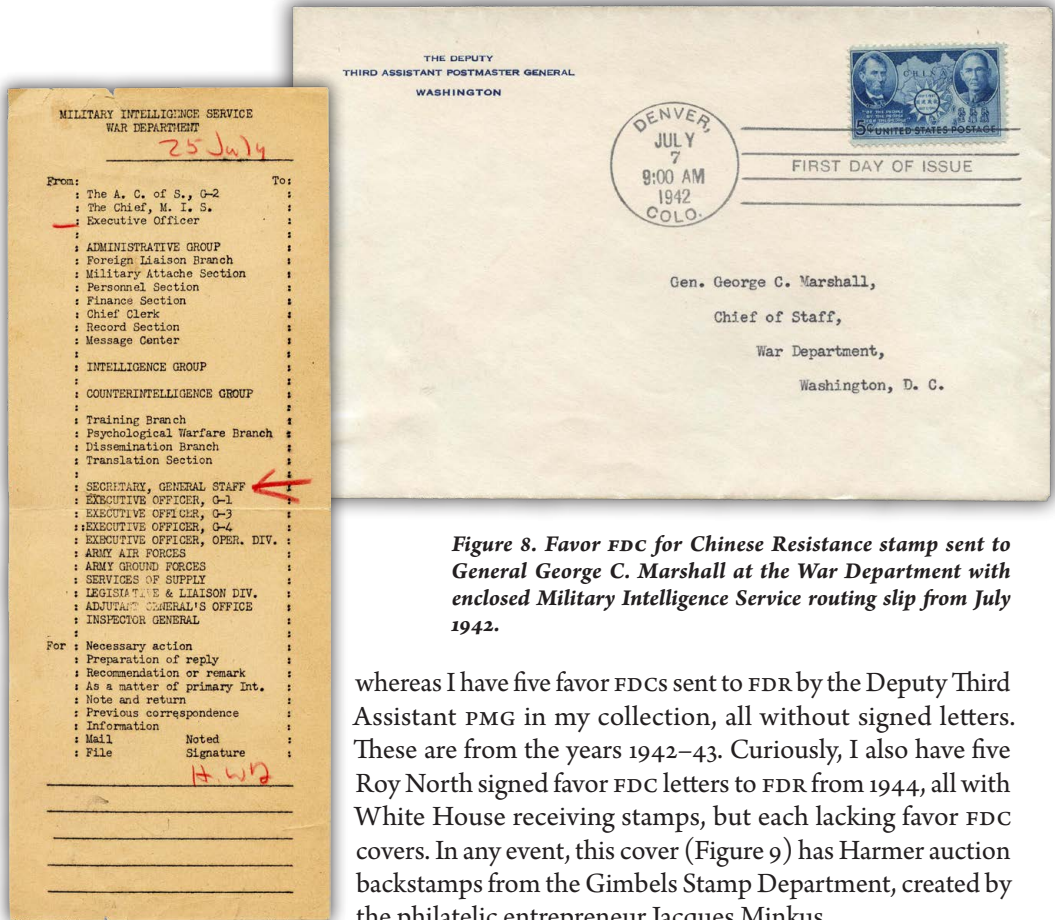 MILITARY INTELLIGENCE SERVICE
WAR DEPARTMENT
25 July
From: To:
: The A. C. of S., G-2 :
: The Chief, M. I. S. :
: Executive Officer :
: ADMINISTRATIVE GROUP :
: Foreign Liaison Branch :
: Military Attache Section :
: Personnel Section :
: Finance Section :
: Chief Clerk :
: Record Section :
: Message Center :
: INTELLIGENCE GROUP :
: COUNTERINTELLIGENCE GROUP :
: Training Branch :
: Psychological Warfare Branch :
: Dissemination Branch :
: Translation Section :
: SECRETARY, GENERAL STAFF :
: EXECUTIVE OFFICER, G-1 :
: EXECUTIVE OFFICER, G-3 :
::EXECUTIVE OFFICER, G-4 :
: EXECUTIVE OFFICER, OPER. DIV. :
: ARMY AIR FORCES :
: ARMY GROUND FORCES :
: SERVICES OF SUPPLY :
: LEGISLATIVE & LIAISON DIV. :
: ADJUTANT GENERAL'S OFFICE :
: INSPECTOR GENERAL :
For : Necessary action :
: Preparation of reply :
: Recommendation or remark :
: As a matter of primary Int. :
: Note and return :
: Previous correspondence :
: Information :
: Mail Noted :
: File Signature :
THE DEPUTY
THIRD ASSISTANT POSTMASTER GENERAL
WASHINGTON
DENVER,
JULY
7
9:00 AM
1942
COLO.
FIRST DAY OF ISSUE
CHINA
5¢ UNITED STATES POSTAGE
Gen. George C. Marshall,
Chief of Staff,
War Department,
Washington, D. C.
Figure 8. Favor FDC for Chinese Resistance stamp sent to
General George C. Marshall at the War Department with
enclosed Military Intelligence Service routing slip from July
1942.
whereas I have five favor FDCs sent to FDR by the Deputy Third
Assistant PMG in my collection, all without signed letters.
These are from the years 1942–43. Curiously, I also have five
Roy North signed favor FDC letters to FDR from 1944, all with
White House receiving stamps, but each lacking favor FDC
covers. In any event, this cover (Figure 9) has Harmer auction
backstamps from the Gimbels Stamp Department, created by
the philatelic entrepreneur Jacques Minkus.